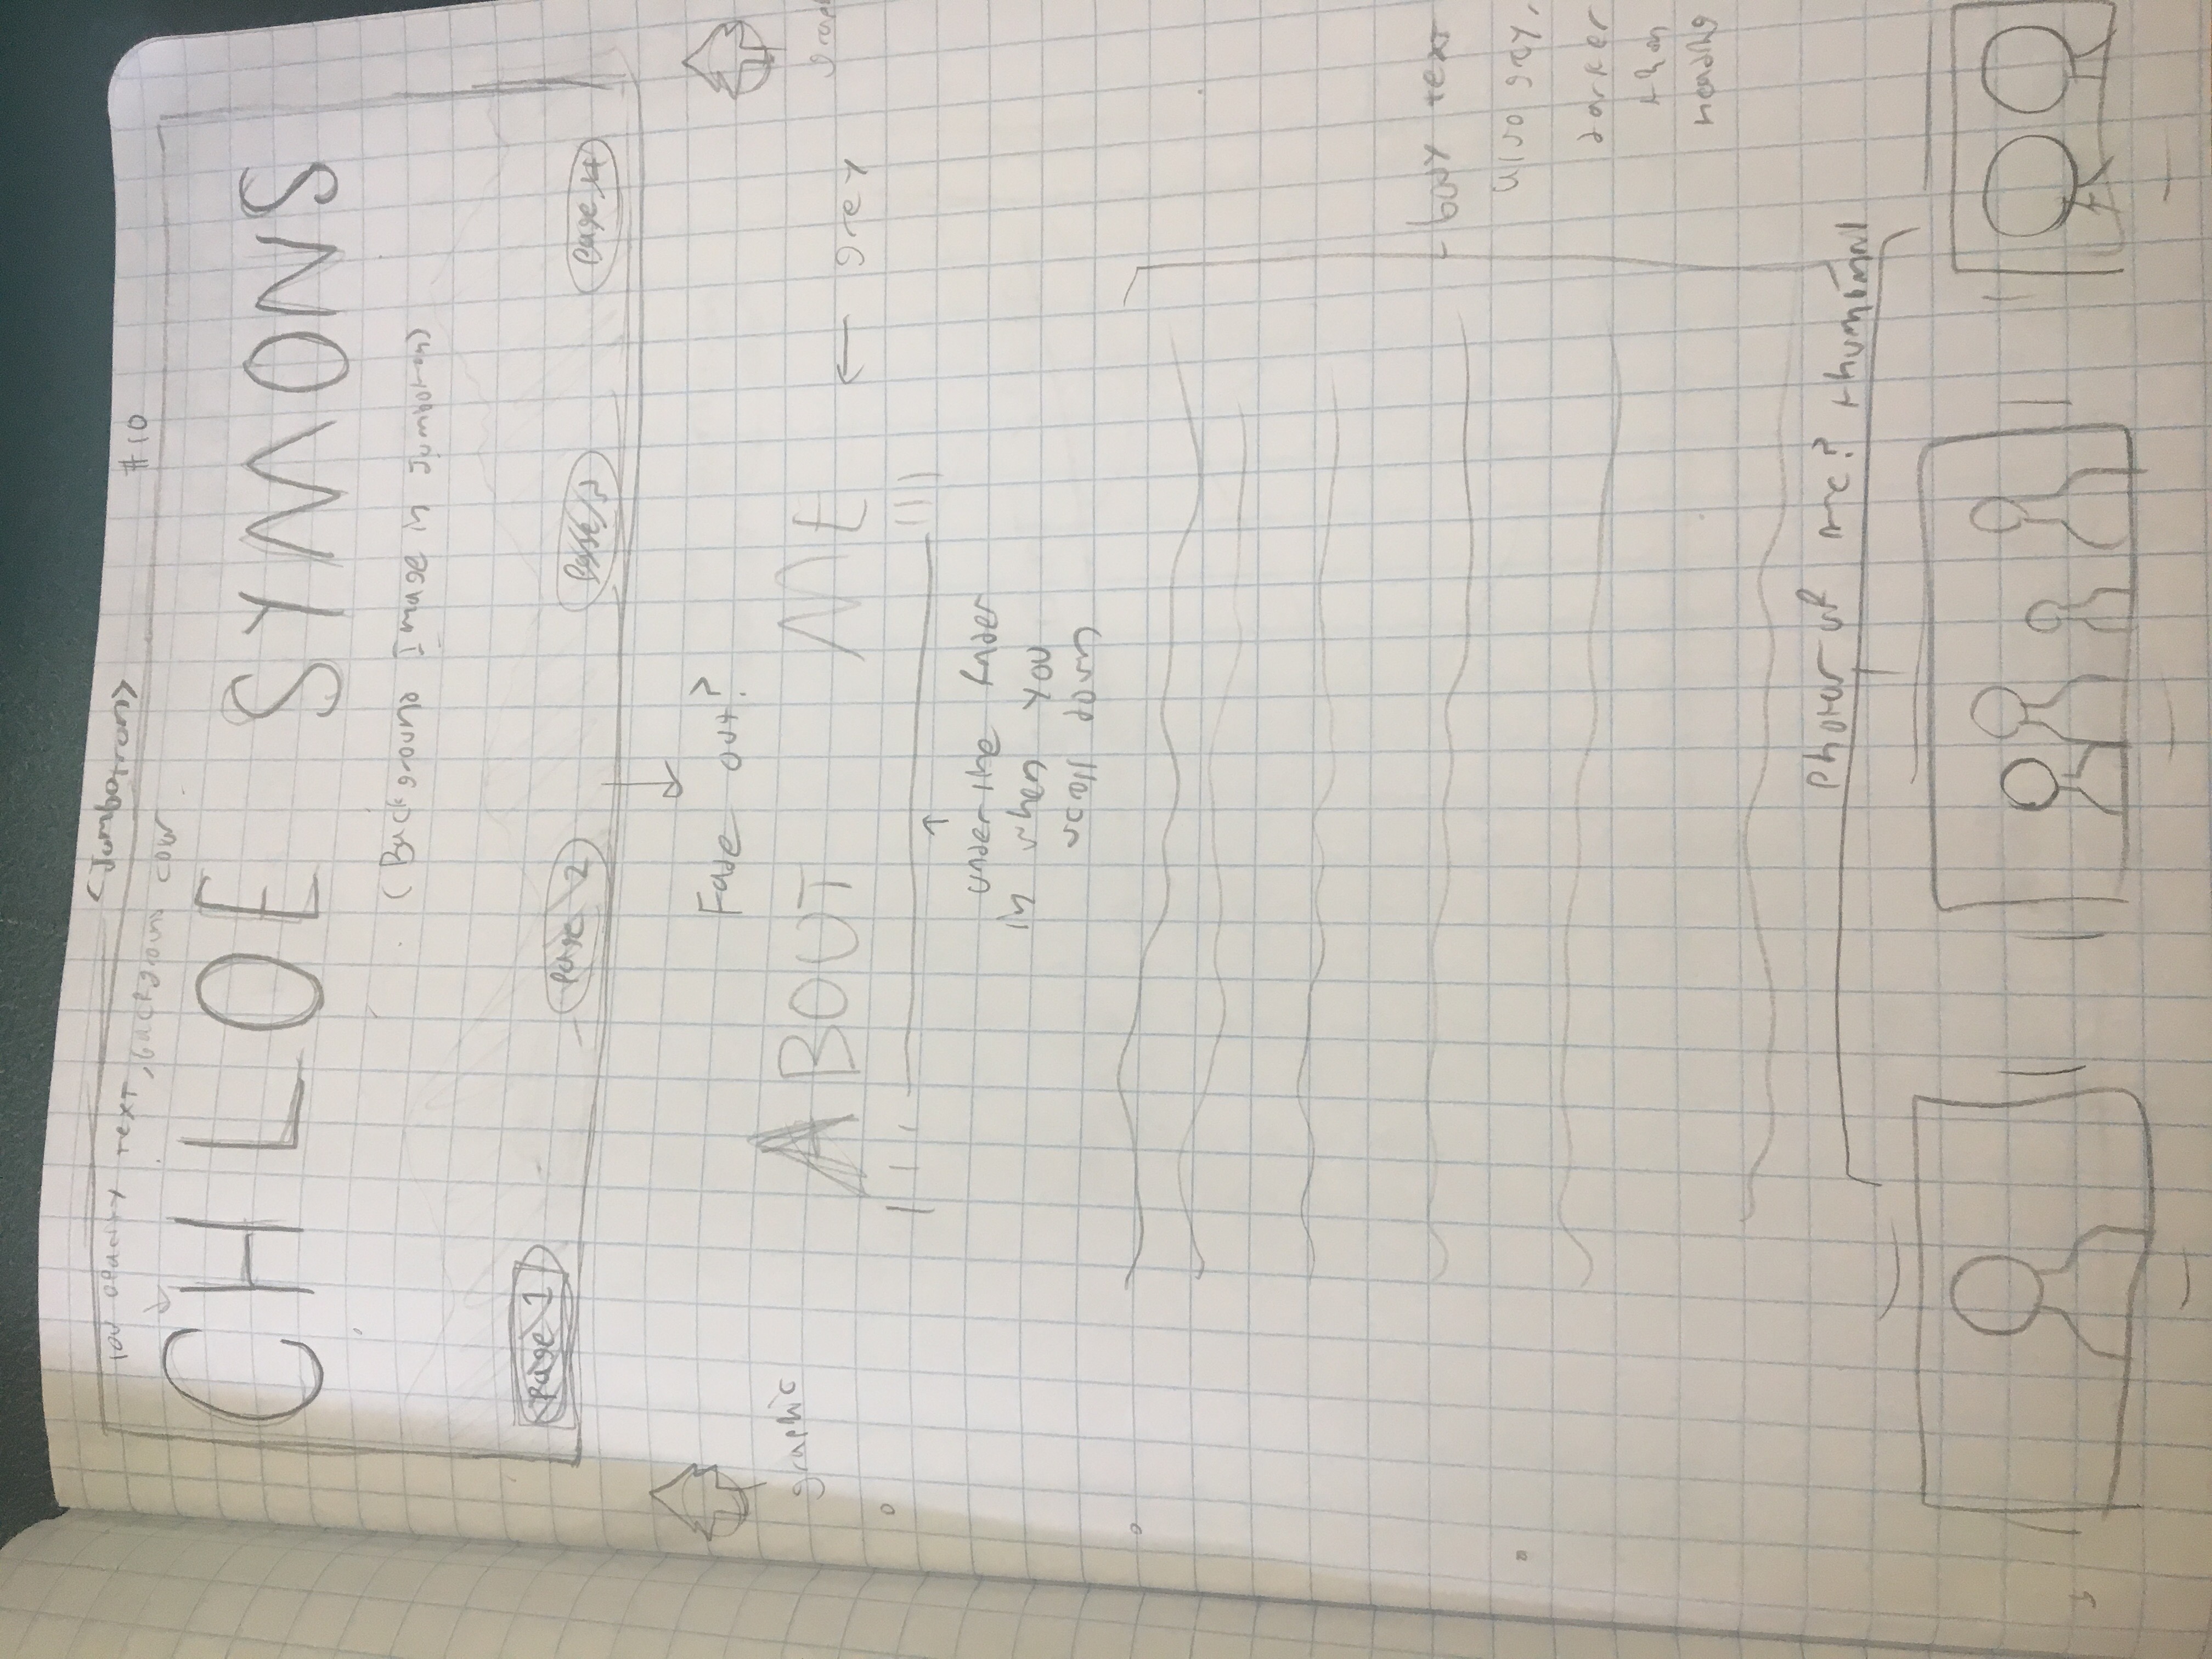 <Jumbotron>
#10
low opacity text, background color
CHLOE SYMONS
(Background Image in Jumbotron)
Page 1
Page 2
Page 3
Page 4
Fade out?
graphic
grap
ABOUT ME
← grey
underline fades
in when you
scroll down
body text
also grey,
darker
than
heading
Photos of me? thumbnail